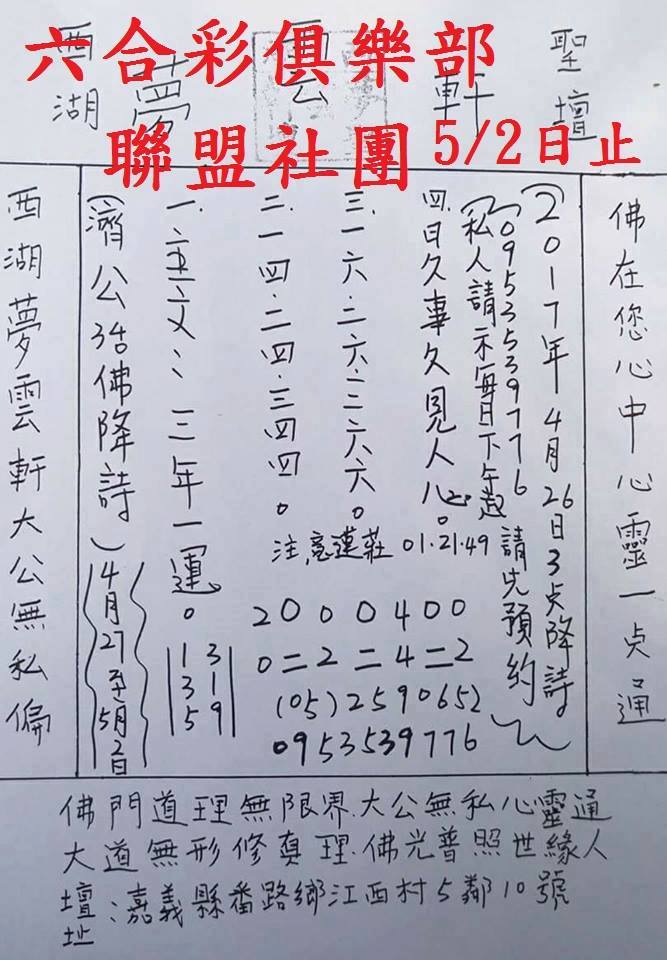 六合彩俱樂部
聯盟社團 5/2日止
西湖 夢雲軒 聖壇
佛在您心中心靈一点通
(2017年4月26日3点降詩)
(0953539776
(私人請示每日下午起 請先預約)
四.日久事久見人心。
三.一六.二六.三六六。
二.一四.二四.三四四。
一.三年一運。
(濟公活佛降詩)
4月27至5月2日
西湖夢雲軒大公無私偏
注意蓮莊 01.21.49
2000400
0=2=4=2
(05)2590652
0953539776
13
31
59
佛門道理無限界.大公無私心靈通
大道無形修真理.佛光普照世緣人
壇址:嘉義縣番路鄉江西村5鄰10號